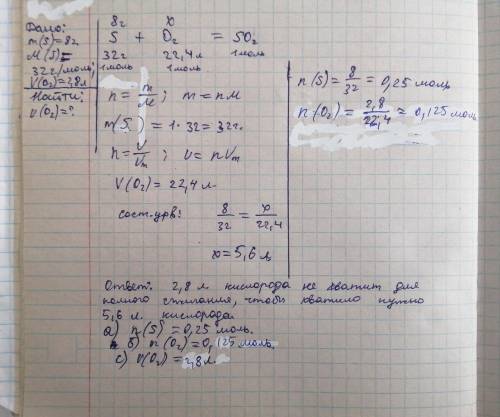 Дано:
m(S)=8г
M(S)=
32г/моль;
V(O₂)=2,8л
Найти:
v(O₂)=?
8г x
S + O₂ = SO₂
32г 22,4л 1моль
1моль 1моль
n = m/M ; m = nM
m(S) = 1·32=32г.
n = v/Vm ; v = nVm
V(O₂) = 22,4 л.
сост. урв: 8/32 = x/22,4
x = 5,6 л
n(S) = 8/32 = 0,25 моль
n(O₂) = 2,8/22,4 = 0,125 моль
Ответ: 2,8 л кислорода не хватит для
полного сжигания, чтобы хватило нужно
5,6 л. кислорода.
а) n(S) = 0,25 моль.
б) n(O₂) = 0,125 моль.
с) v(O₂) = 2,8 л.